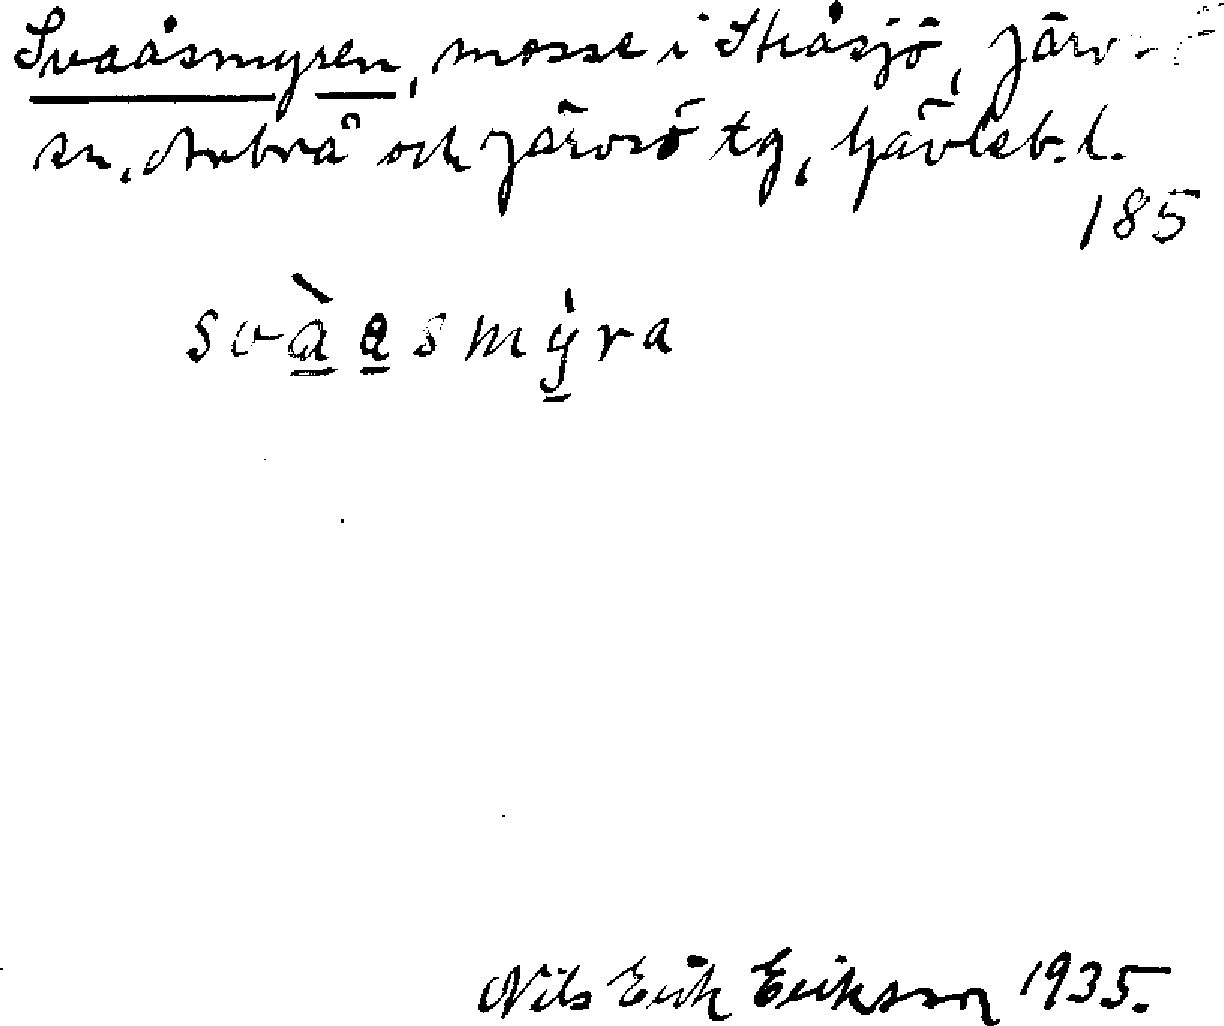 Svaåsmyren, mosse i Skåsjö, Järv-
sn, Arbrå och Järvsö tg, Gävleb. l.
185
svàa̲smy̲ra
Nils Erik Eriksson 1935.